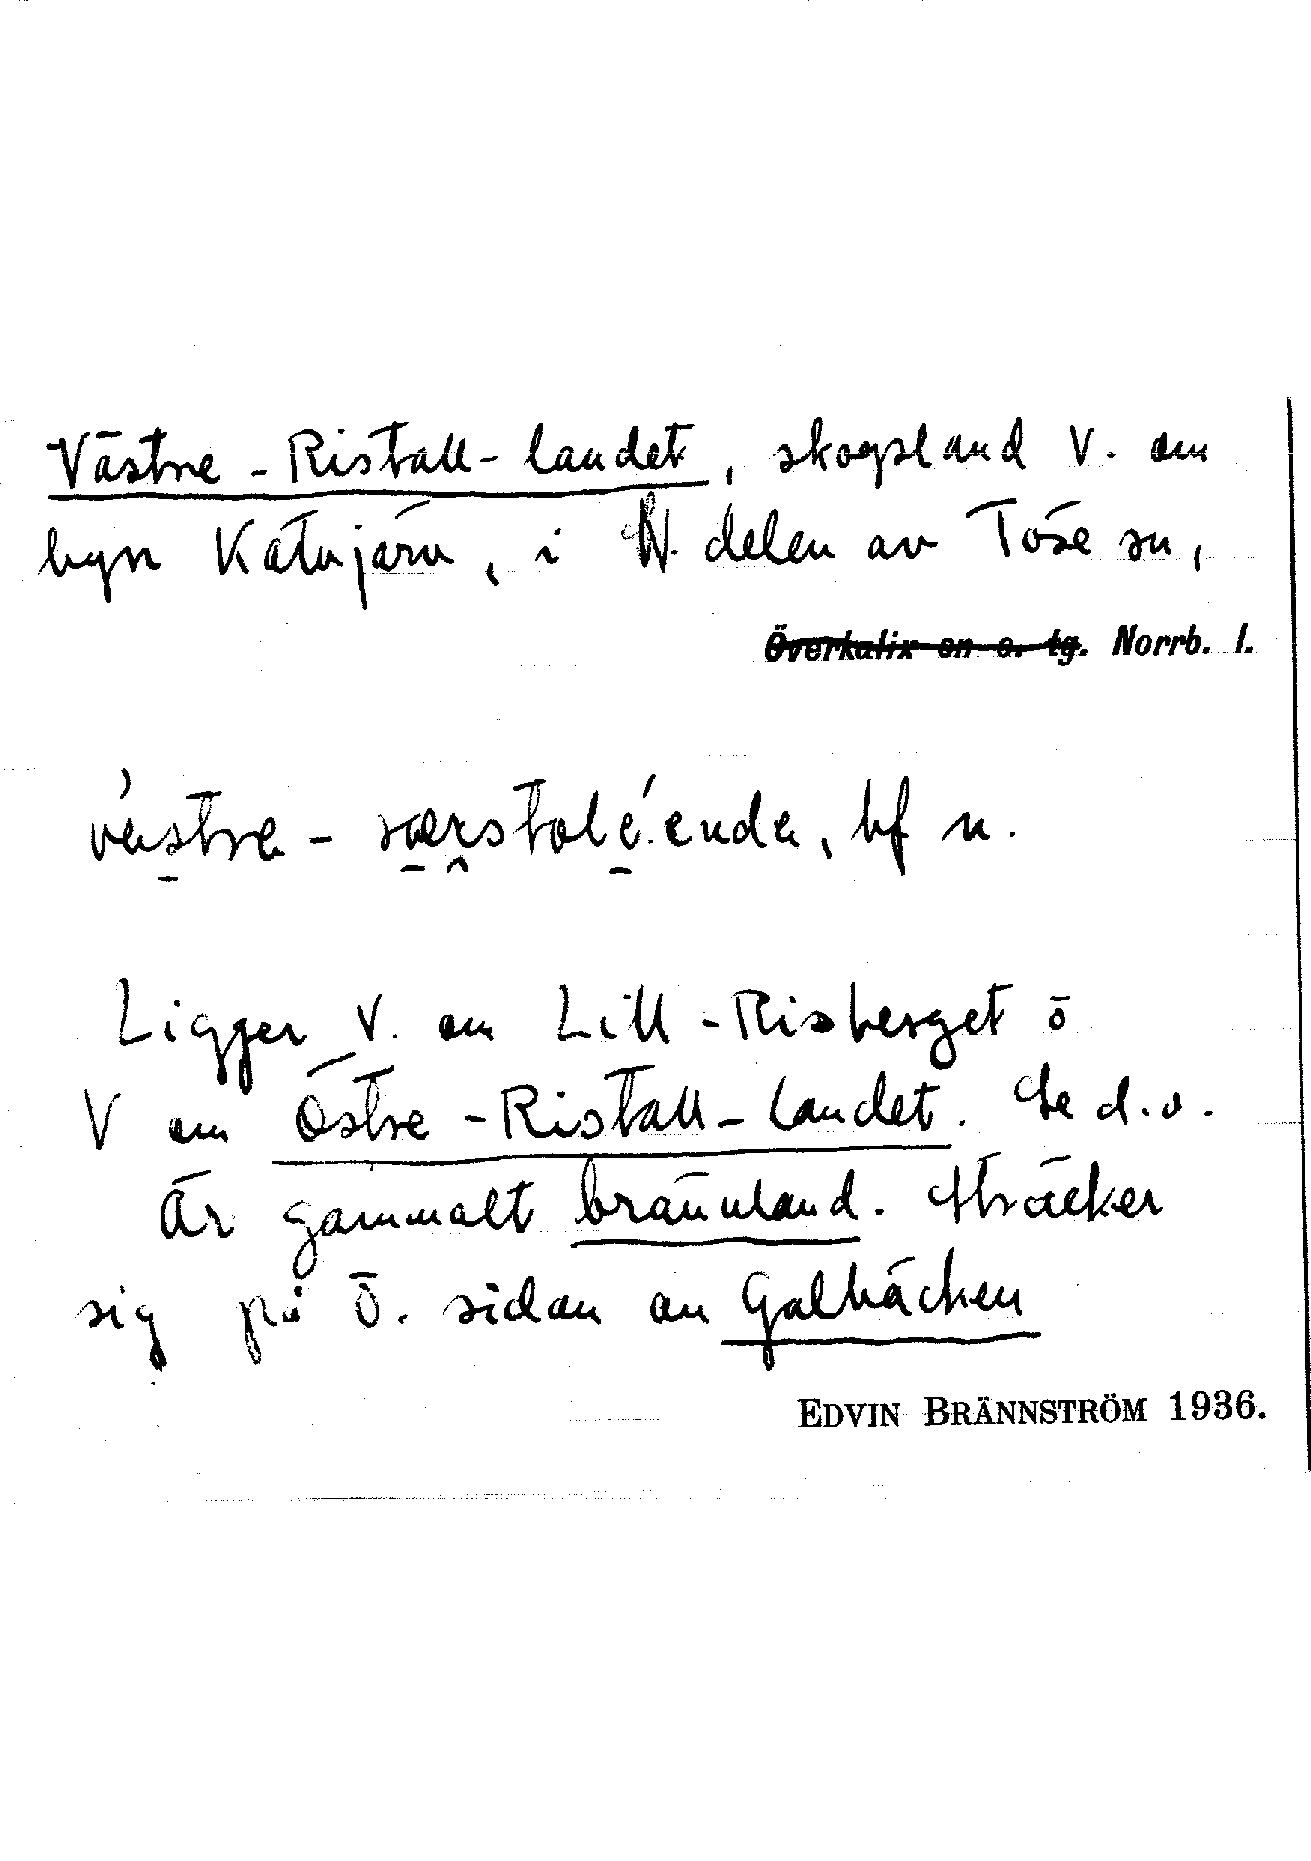 Västre-Ristall-landet, skogsland V. om
byn Katujärv, i N. delen av Töre sn,
Överkalix sn o. tg. Norrb. l.
västre- bf n.
Ligger V. om Lill-Risberget o
V om Östre-Ristall-landet. Se d.o.
Är gammalt brännland. Sträcker
sig på Ö. sidan av Galbäcken
EDVIN BRÄNNSTRÖM 1936.